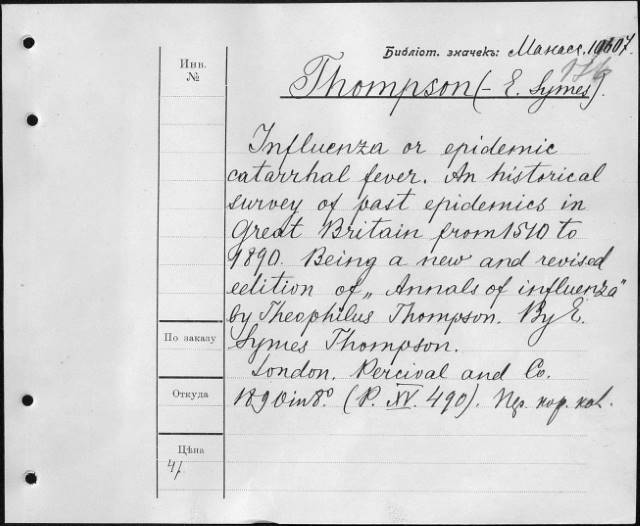 Библіот. значекъ: Манасс. 10607.
Инв.
№
Thompson (- E. Symes).
Influenza or epidemic
catarrhal fever. An historical
survey of past epidemics in
Great Britain from 1510 to
1890. Being a new and revised
edition of „Annals of influenza"
by Theophilus Thompson. By E.
По заказу
Symes Thompson.
London. Percival and Co.
Откуда
1890 in 8º. (P. XV. 490). кор.
Цѣна
47